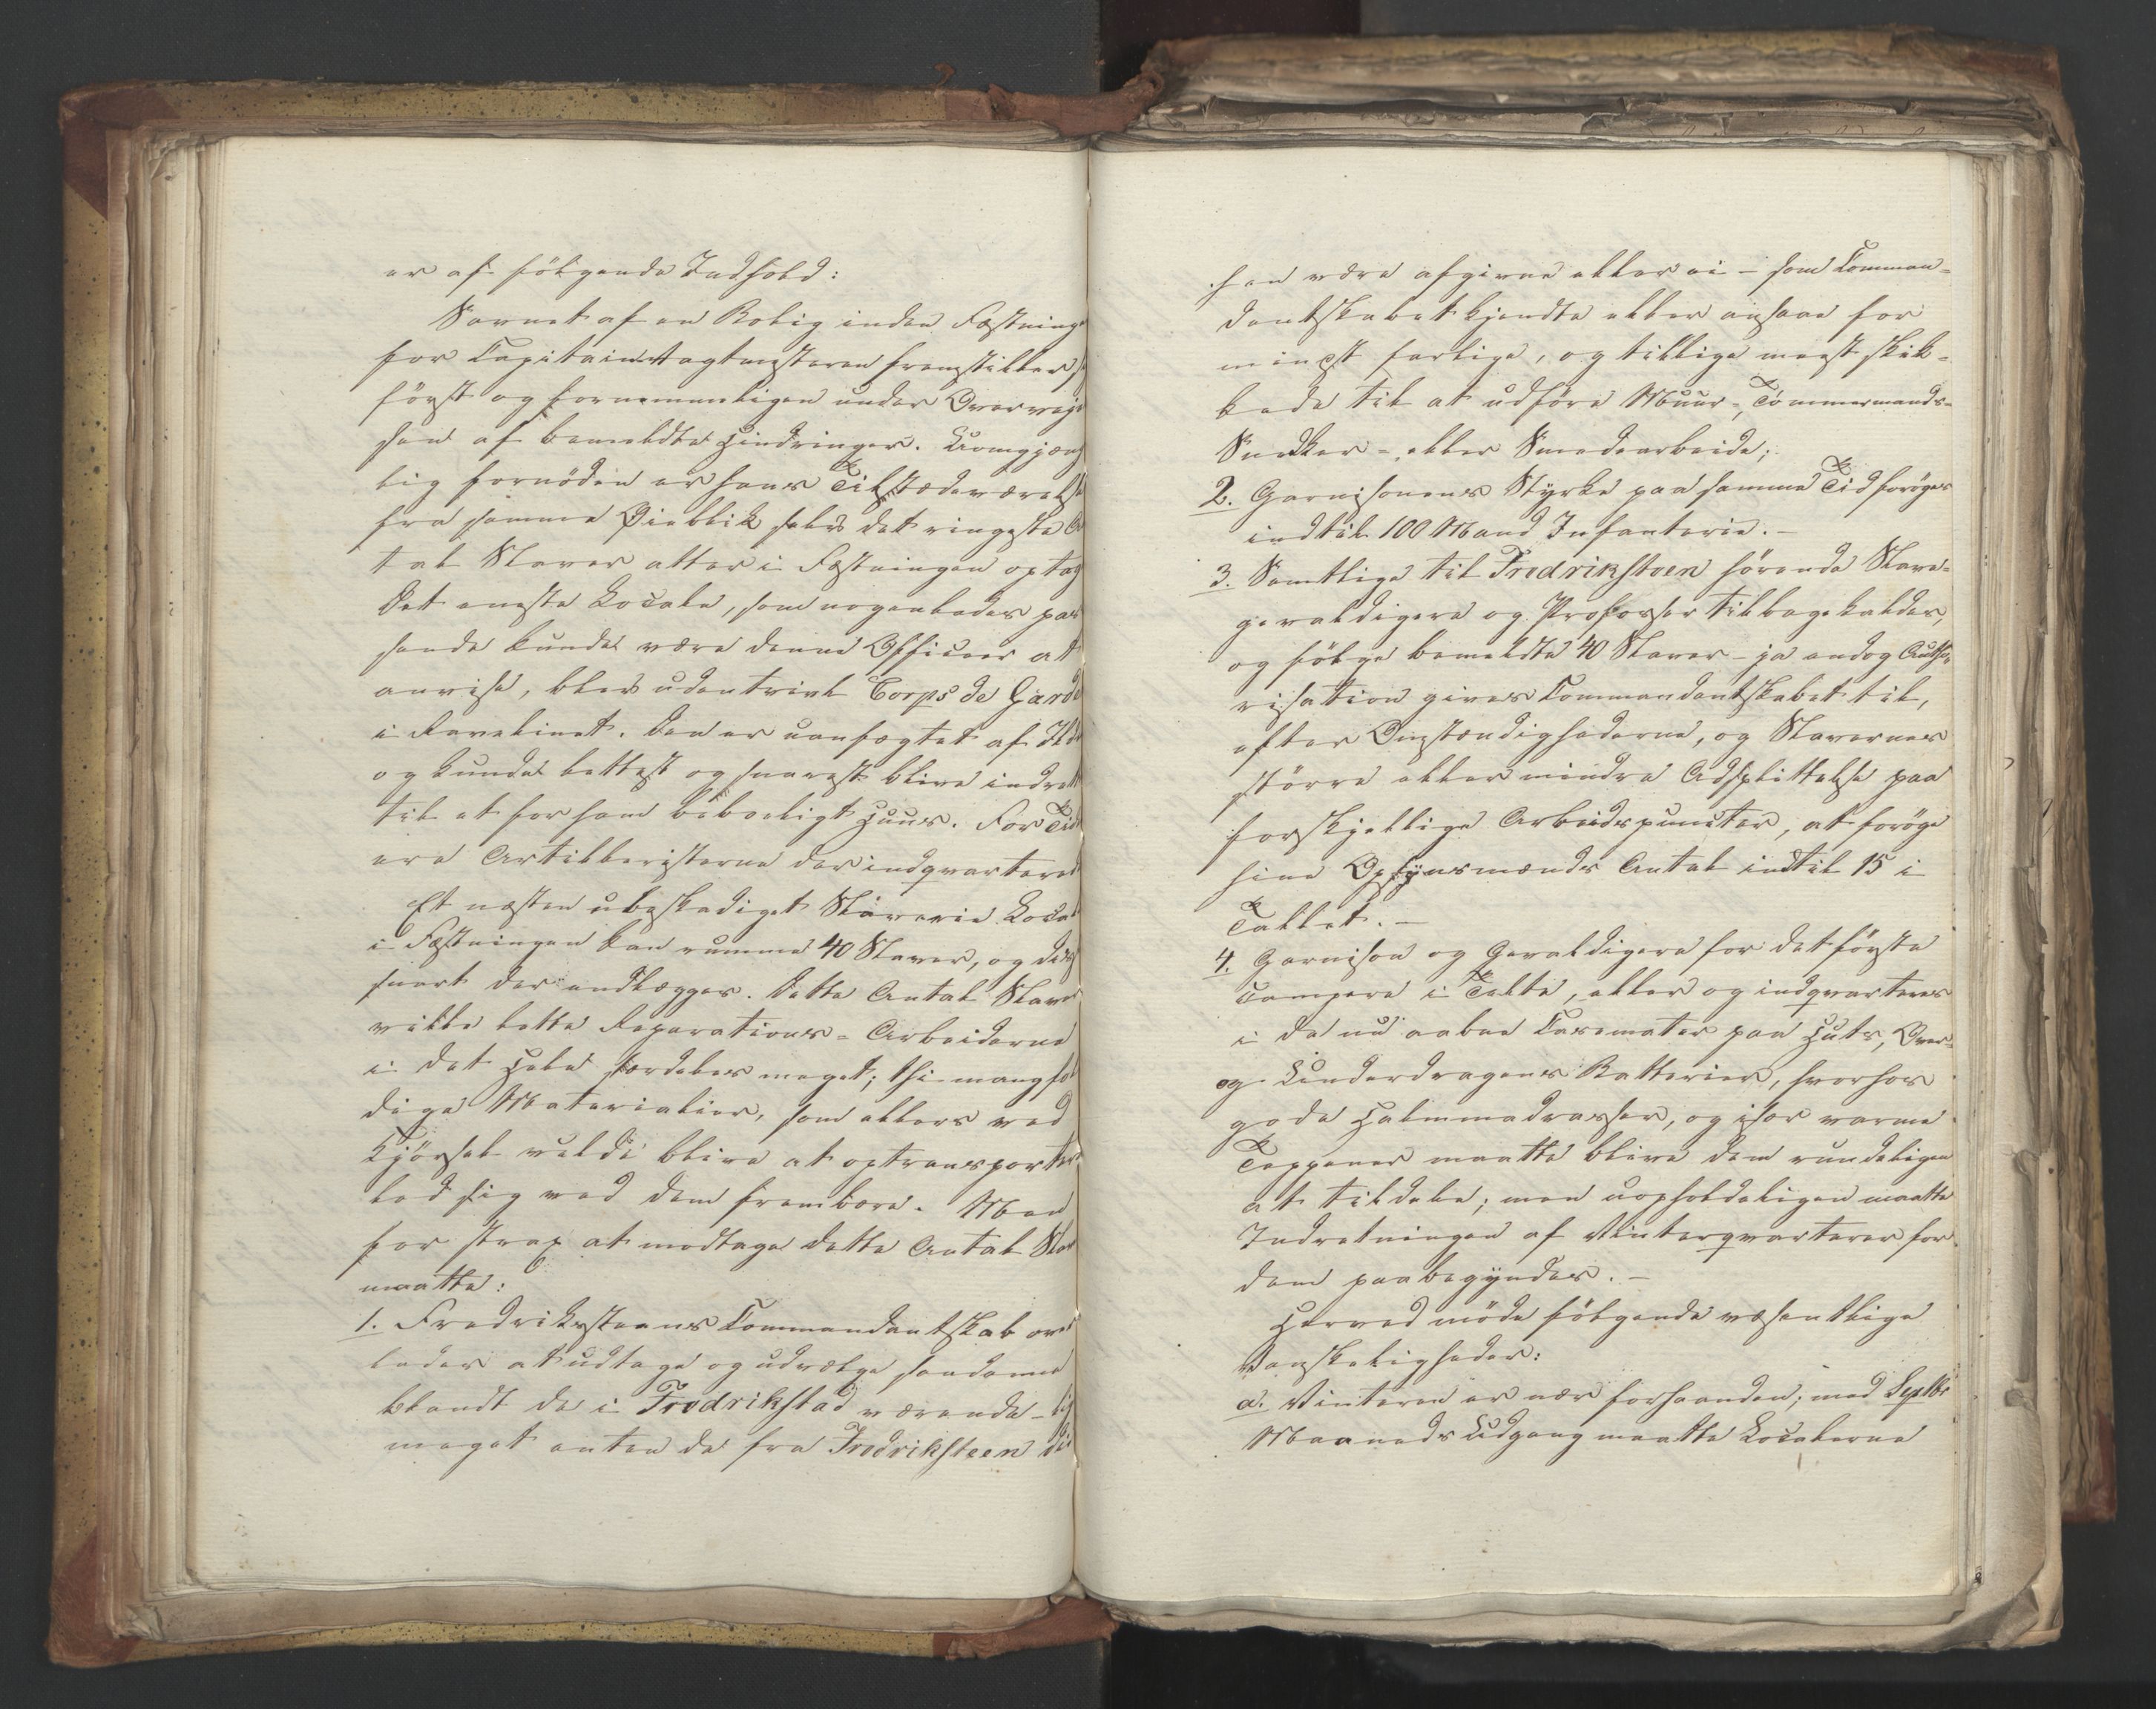 er af følgende Indhold:
Savnet af en Bolig inden Fæstninge
for Capitainvagtmesteren fremstilles
först og fornemmeligen under Overveje
sen af bemeldte Hindringer. Uomgjæng
lig fornöden er hans Tilstædeværelse
fra samme Øieblik selv det ringeste
tal Slaver atter i Fæstningen optag
Det eneste Locale, som nogenledes pas
sende kunde være denne Officeer at
anvise, blev udentvivl Corps de Garde
i Ravelinet. Den er uanfægtet af Ild
og kunde lettest og snarest blive indrett
til et for ham beboeligt Huus. For Tid
ere Artilleristerne der indqvarterede
Et næsten ubeskadiget Slaverie Local
i Fæstningen kan rumme 40 Slaver, og de
snart der indlægges. Dette Antal Slaver
ville lette Reparations-Arbeiderne
i det Hele særdeles meget; thi mangfol
dige Materialier, som ellers ved
Kjörsel vilde blive at optransportere
lod sig ved dem frembære. Men
for strax at modtage dette Antal Slav
maatte:
1. Fredriksteens Commandantskab over
lades at udtage og udvælge saadanne
blandt de i Fredrikstad værende - lig
meget enten de fra Fredriksteen did
hen være afgivne eller ei - som Comman-
dantskabet kjendte eller ansaae for
mindst farlige, og tillige meest skik-
kede til at udföre Muur-, Tömmermands-
Snedker- eller Smedearbeide;
2. Garnisonens Styrke paa samme Tid foröges
indtil 100 Mand Infanterie. -
3. Samtlige til Fredriksteen hörende Slave-
gevaldigere og Profosser tilbagekaldes,
og fölge bemeldte 40 Slaver - ja endog Autho-
risation gives Commandantskabet til,
efter Omstændighederne, og Slavernes
större eller mindre Adsplittelse paa
forskjellige Arbeidspuncter, at foröge
sine Opsynsmænds Antal indtil 15 i
Tallet. -
4. Garnison og Gevaldigere for det förste
campere i Telte, eller og indqvarteres
i de nu aabne Casematter paa Huts, Over-
og Underdragens Batterier, hvorhos
gode Halmmadrasser, og især varme
Teppener maatte blive dem rundeligen
at tildele; men uopholdeligen maatte
Indretningen af Vinterqvarterer for
dem paabegyndes. -
Herved möde fölgende væsentlige
Vanskeligheder:
a. Vinteren er nær forhaanden; med Septbr
Maaneds Udgang maatte Localerne